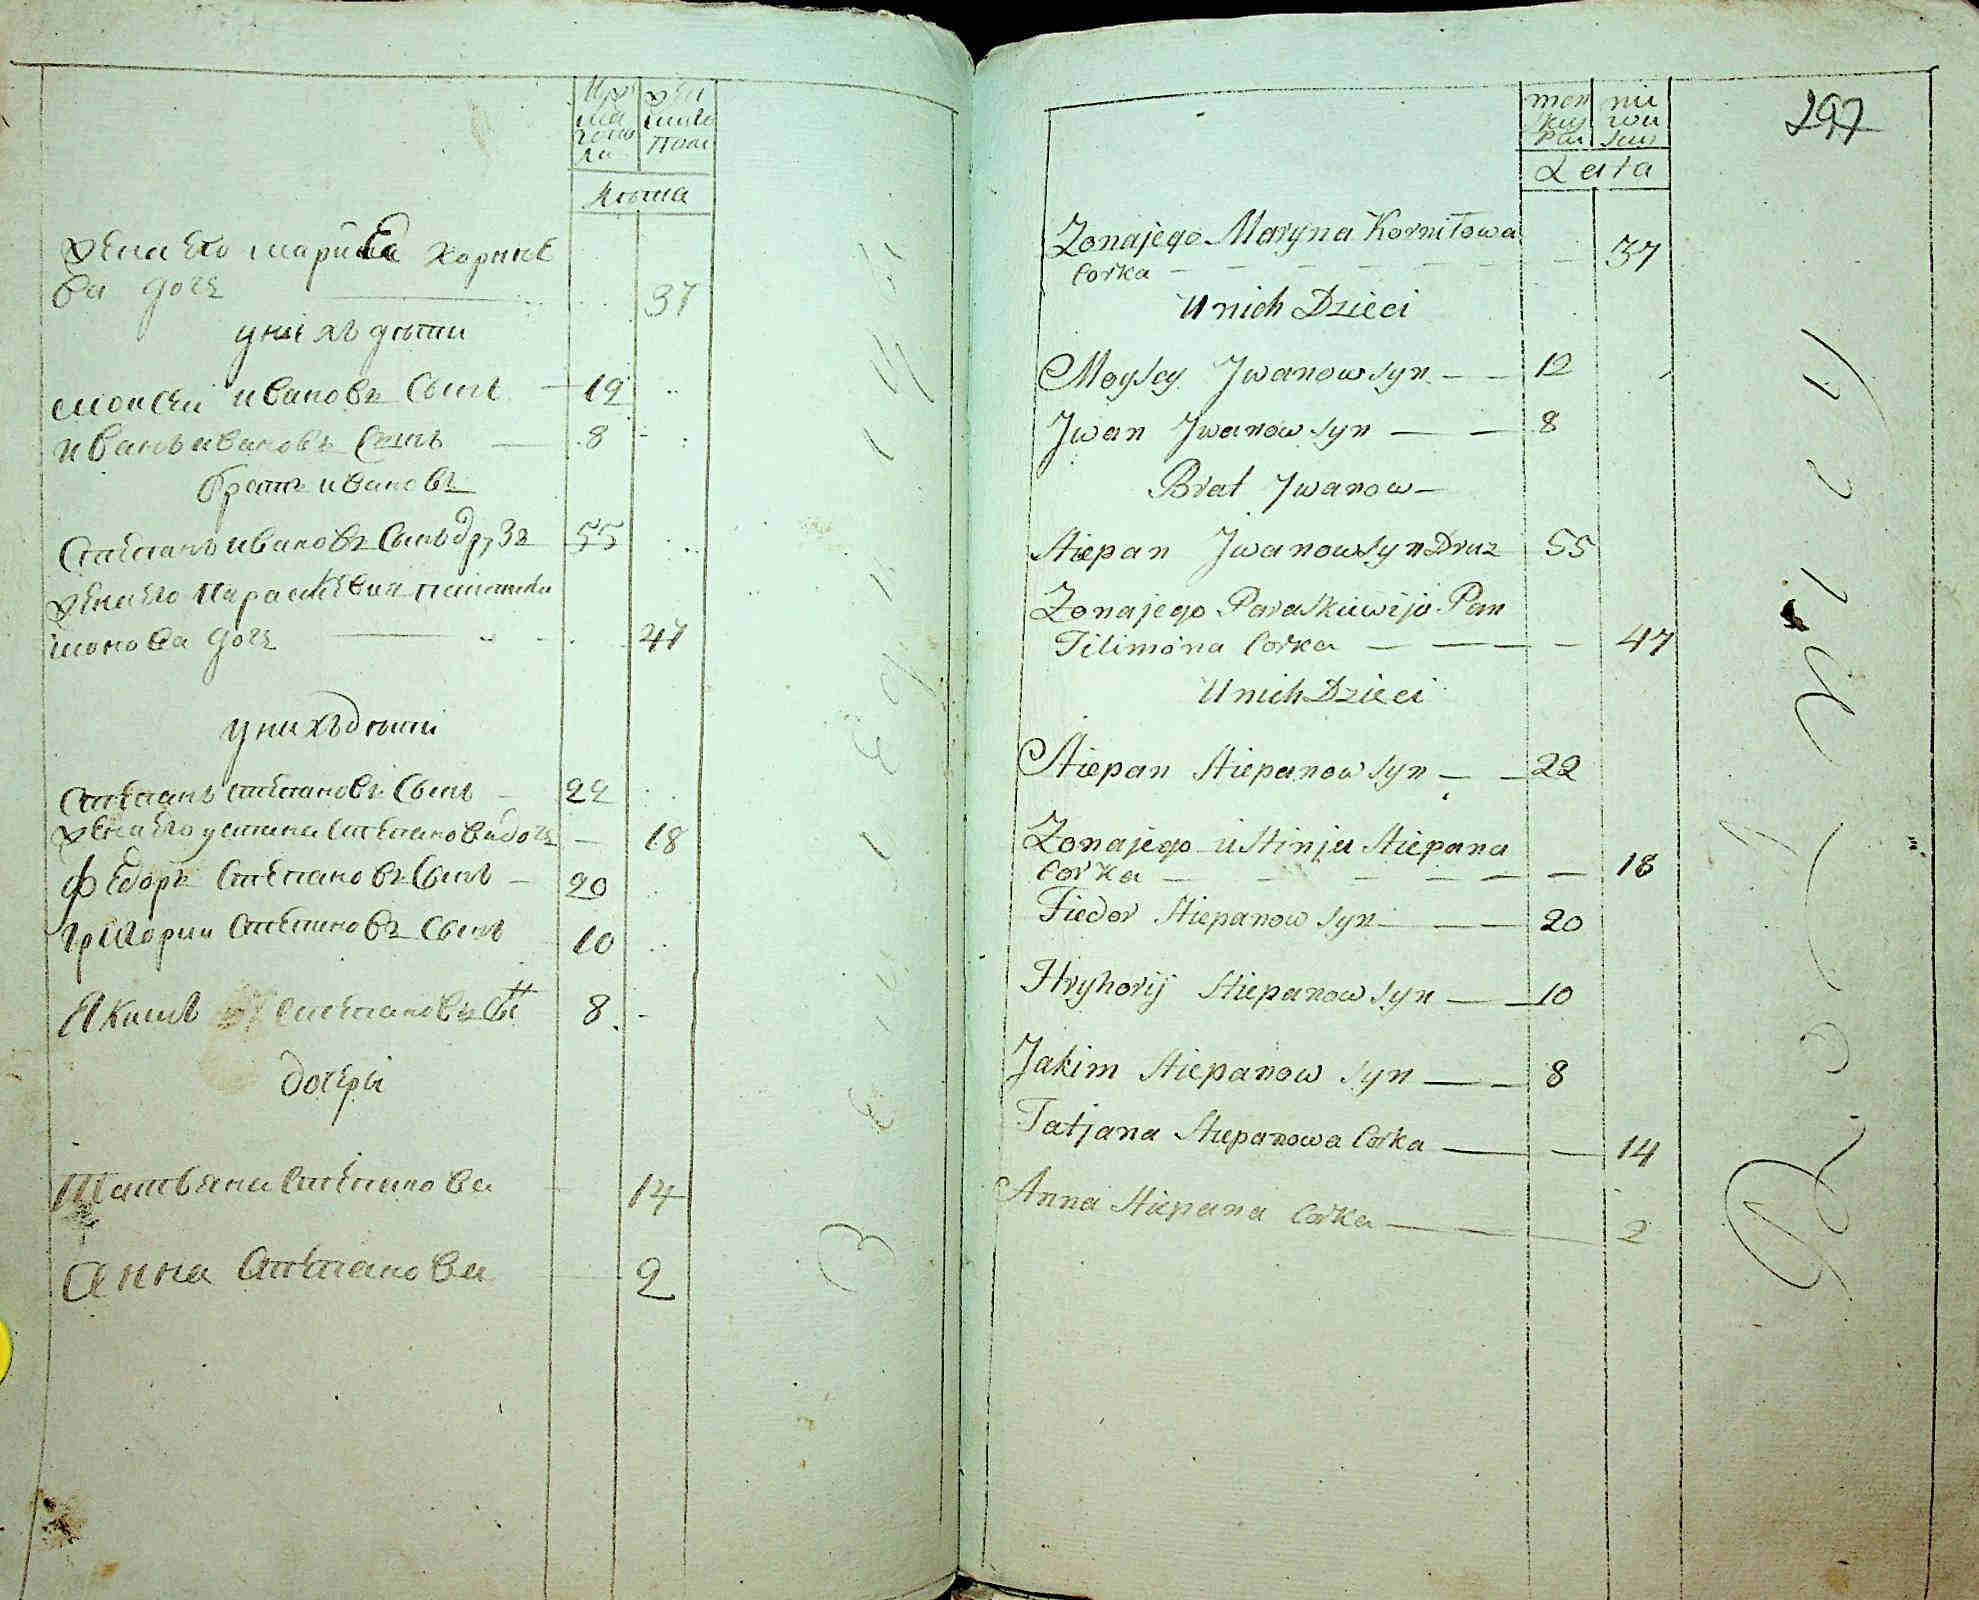 Мужеска пола
женска пола
Лѣта
жена его марина корнѣе
ва дочь 37
у нихъ дѣти
моисеи ивановъ сынъ 12
иванъ ивановъ сынъ 8
братъ ивановъ
Степанъ ивановъ сынъ друзъ 55
жена его параскевия пантели
монова дочь 47
у нихъ дѣти
степанъ степановъ сынъ 22
жена его устина степанова дочь 18
федоръ степановъ сынъ 20
григории степановъ сынъ 10
Якимъ степановъ сы 8
дочери
Татьяна степанова 14
Анна степанова 2
297
Lata
Zonajego Maryna Korniłowa
Corka 37
U nich Dzieci
Moysey Jwanow syn 12
Jwan Jwanow syn 8
Brat Jwanow
Stiepan Jwanow syn Druz 55
Zonajego Paraskiewija Pan
Tilimona Corka 47
U nich Dzieci
Stiepan Stiepanow syn 22
Zonajego ustinja Stiepana
Corka 18
Fiedor Stiepanow syn 20
Hryhorij Stiepanow syn 10
Jakim Stiepanow syn 8
Tatjana Stiepanowa Corka 14
Anna Stiepana Corka 2